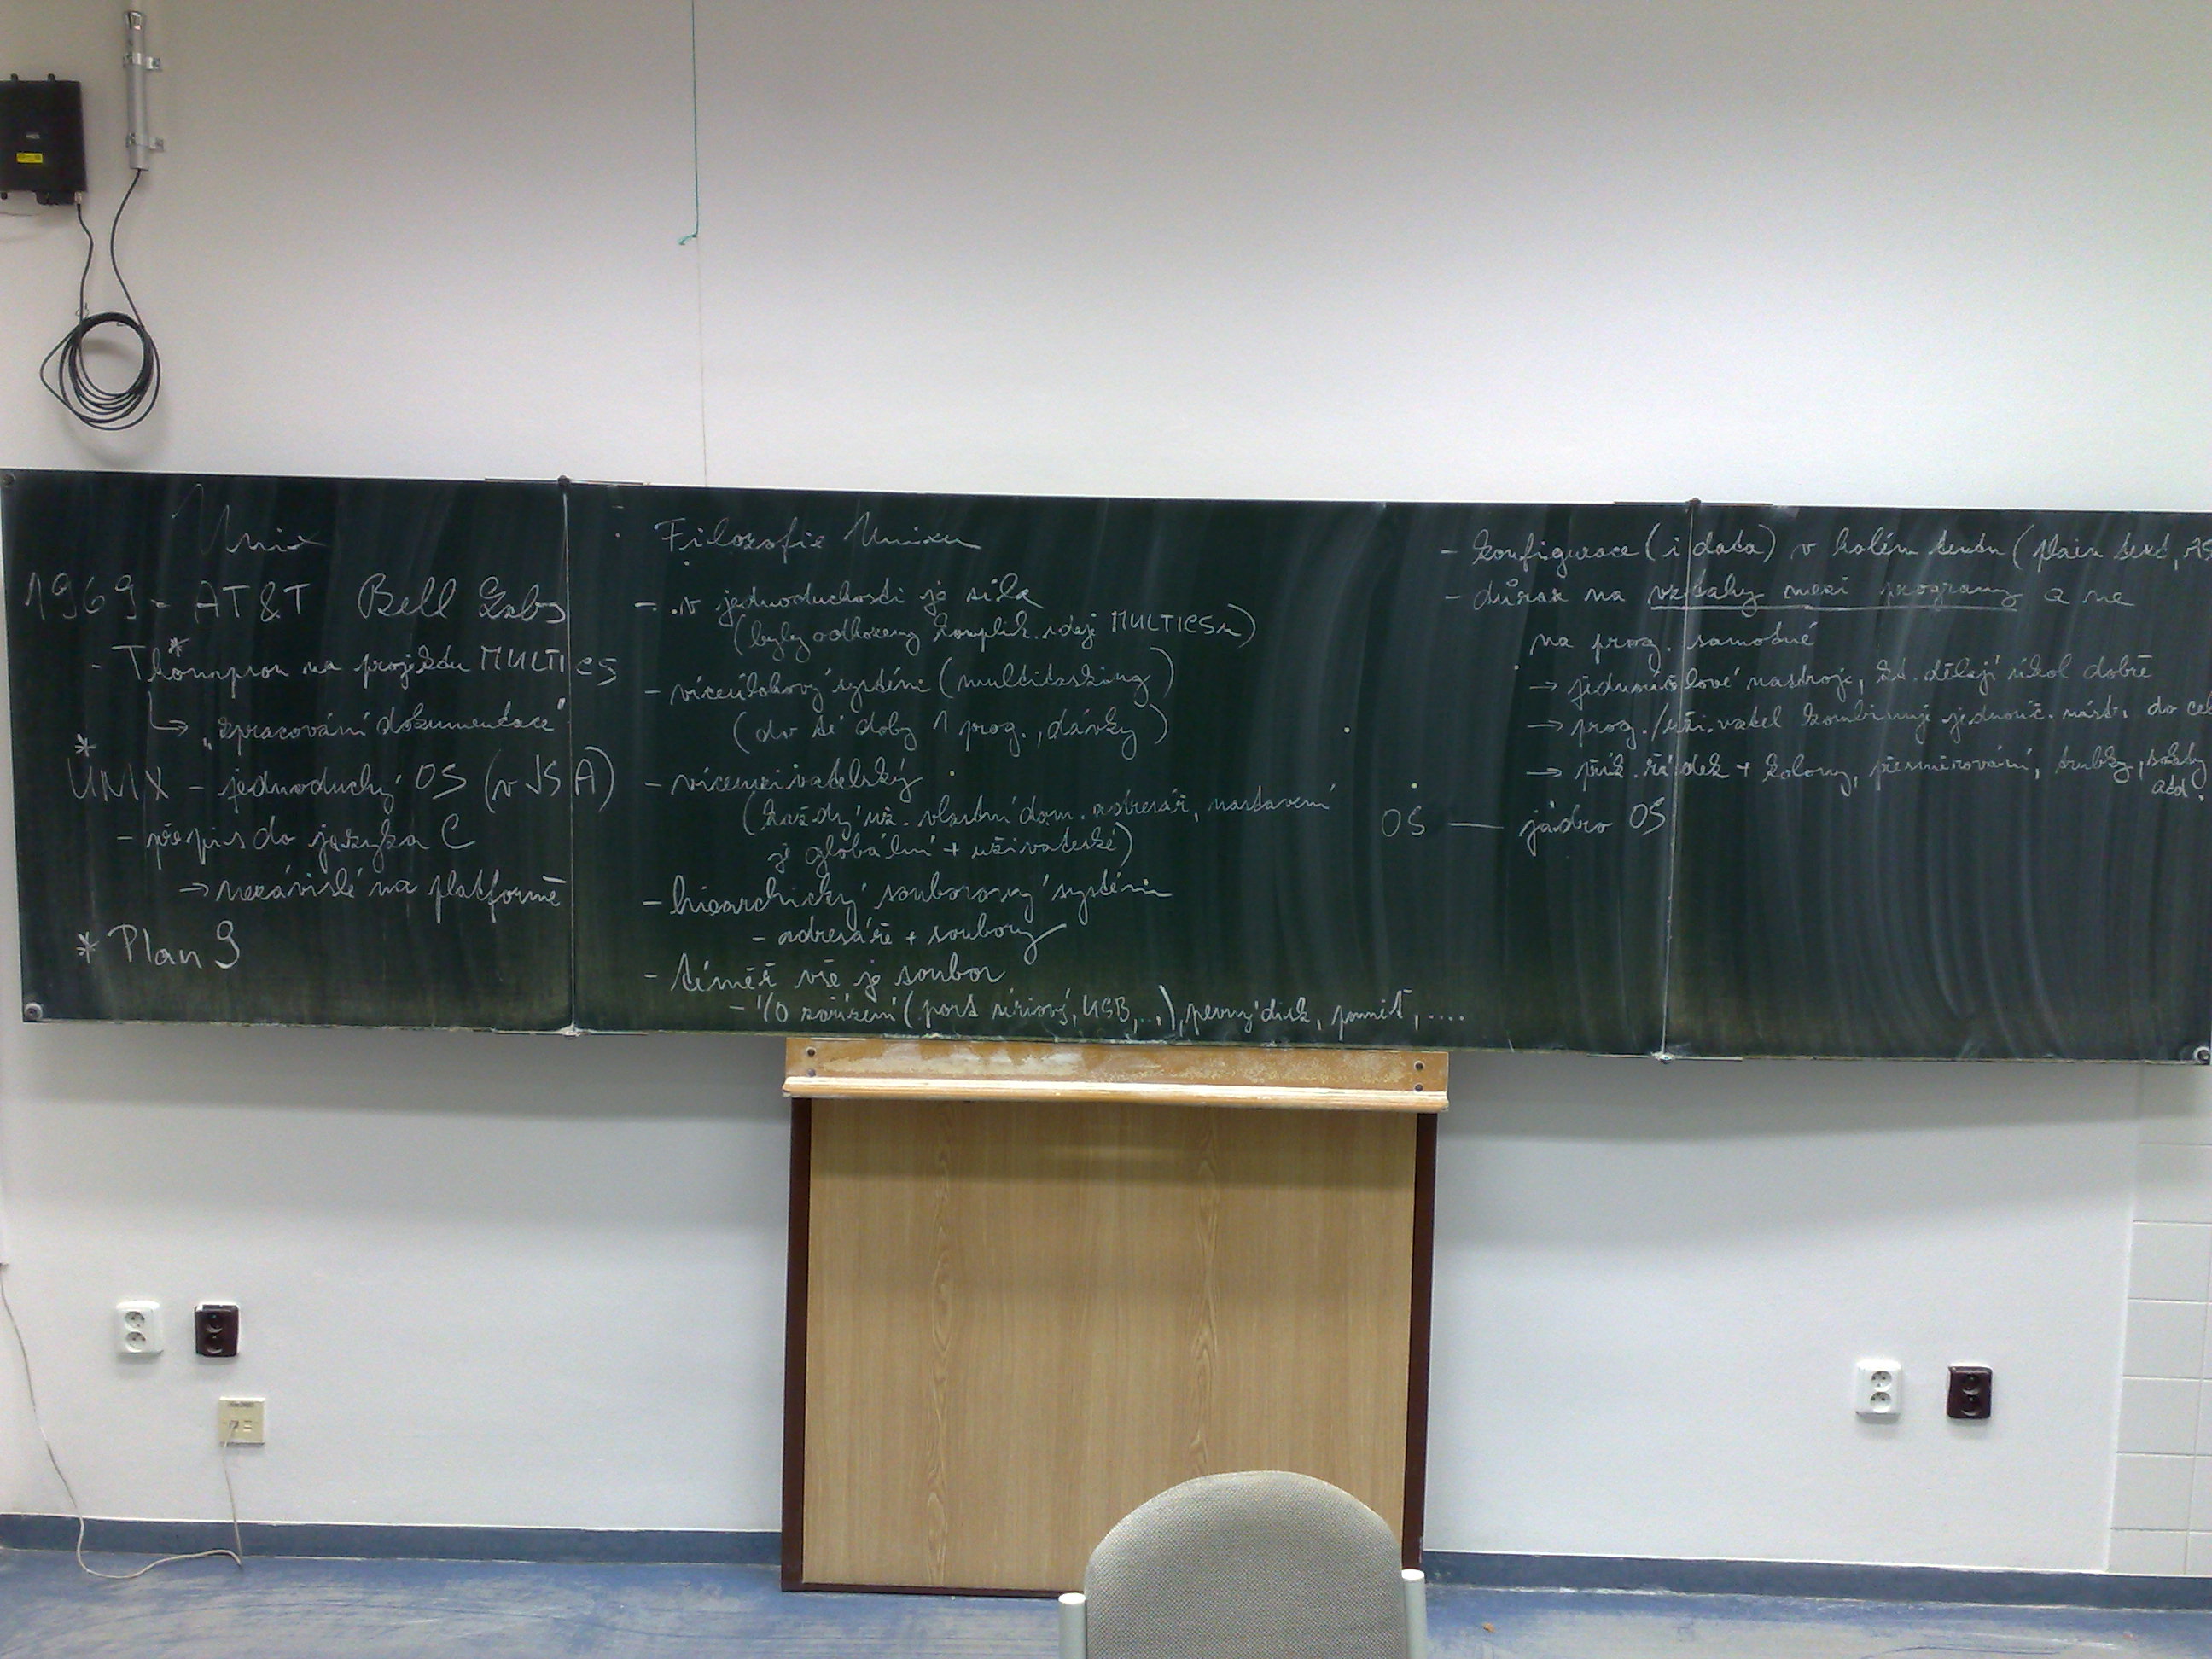 Unix
1969 - AT&T Bell Labs
- Thompson na projektu MULTICS
↳ "zpracování dokumentace"
* UNIX - jednoduchý OS (v JSA)
- přepis do jazyka C
→ nezávislé na platformě
* Plan 9
Filozofie Unixu
- v jednoduchosti je síla
(byly odhozeny komplik. ideje MULTICSu)
- víceúlohový systém (multitasking)
(do té doby 1 prog., dávky)
- víceuživatelský
(každý už. vlastní dom. adresář, nastavení
je globální + uživatelské)
- hierarchický souborový systém
- adresáře + soubory
- téměř vše je soubor
- I/O zařízení (port sériový, USB, ...), pevný disk, paměť, ....
- konfigurace (i data) v holém textu (plain text,
- důraz na vztahy mezi programy a ne
na prog. samotné
→ jednoúčelové nástroje, kt. dělají úkol dobře
→ prog./uživatel kombinuje jednoúč. nást. do
→ přík. řádek + kolony, přesměrování, trubky, sokety
atd.
OS — jádro OS